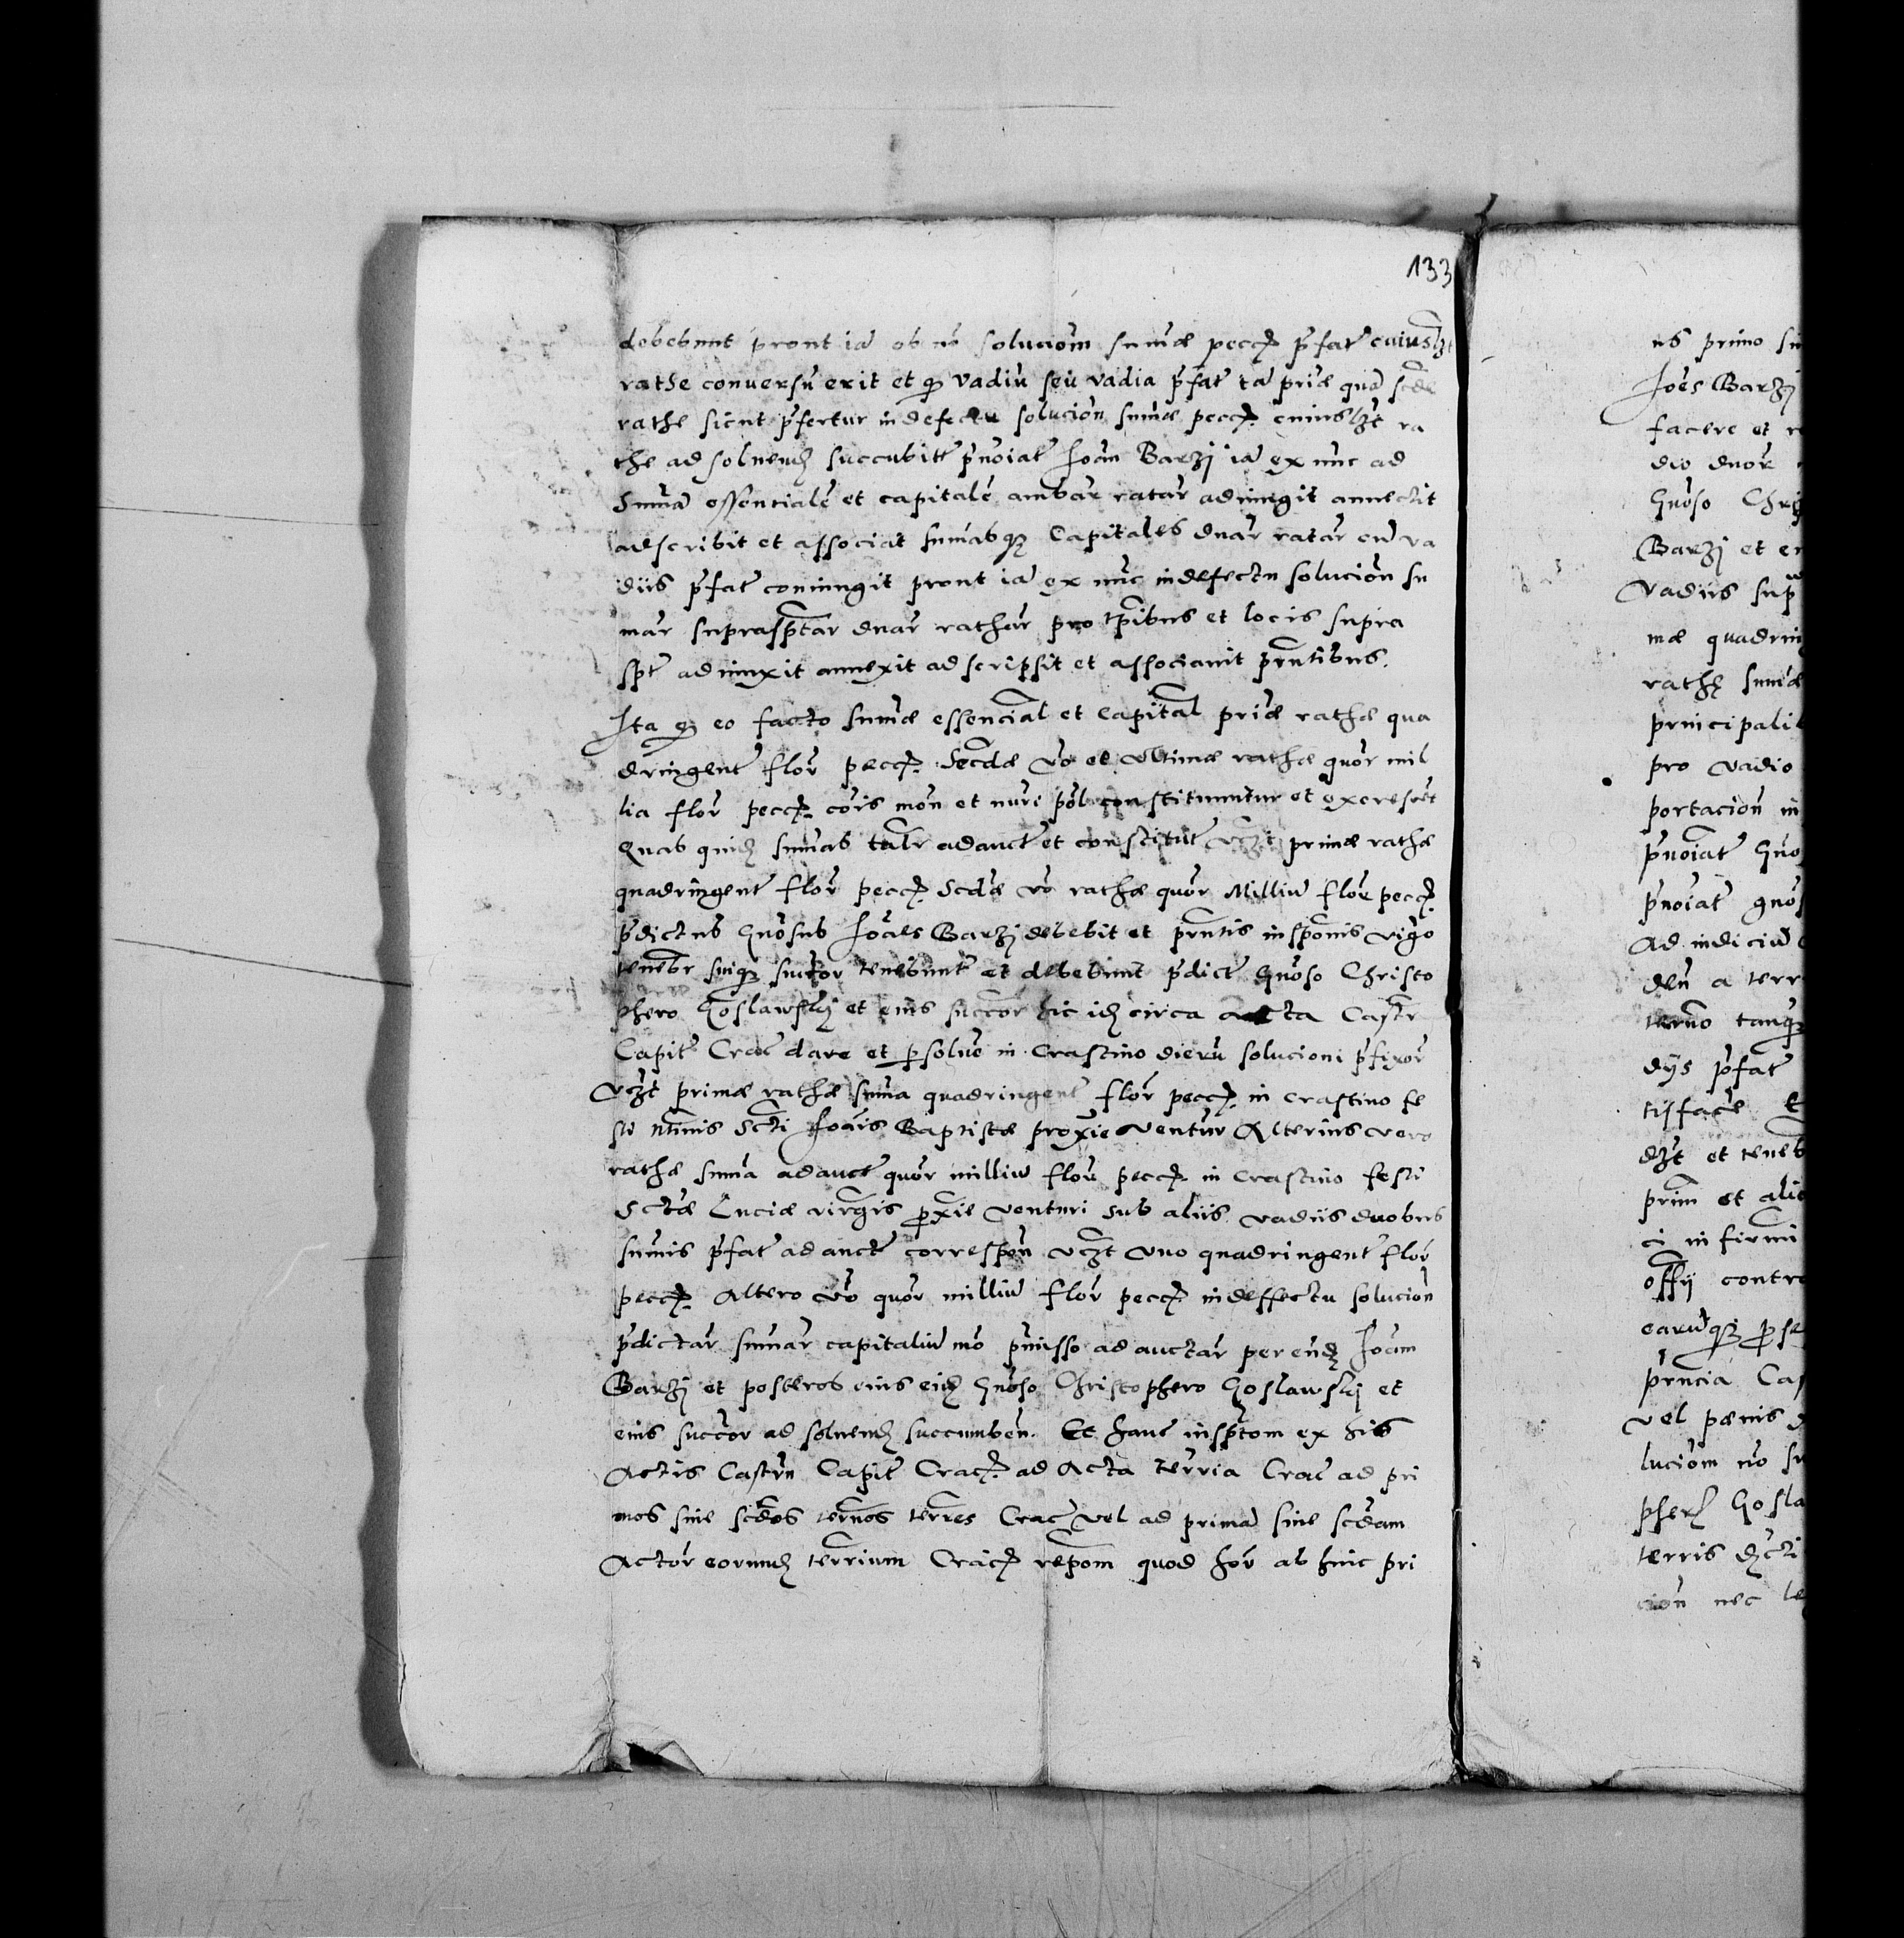 133
debebunt prout iã ob nõ soluciom̃ sum̃æ pecc p̃fat̃ cuiuslʒt
rathe conuersũ erit et ꝙ vadiũ seu vadia p̃fat̃ tã prĩæ quã scdæ
rathe sicut p̃fertur in defectu solucioñ sum̃æ pecc cuiuslʒt ra
the ad soluend succubitt̃ p̃noĩat̃ Joañ Barzj iã ex nũc ad
Sum̃ã essentialẽ et capitalẽ ambar̃ ratar̃ adiungit annectit
adscribit et associat sum̃asqʒ Capitales duar̃ ratar̃ cũ va
diis p̃fat̃ coniungit prout iã ex nũc in defectu solucioñ su
mar̃ suprasp̃tar̃ duar̃ rathar̃ pro tp̃ibus et locis supra
sp̃t̃ adiunxit annexit adscripsit et associauit p̃ntibus.
Ita ꝙ eo facto sum̃æ essencial̃ et capital̃ prĩæ rathæ qua
dringent̃ flor̃ pecc. Secdæ vo et vltimæ rathæ quor̃ mil
lia flor̃ pecc cõis moñ et nũri pol̃ constituuntur et excrescẽt
Quas quid sum̃as talr̃ adauct̃ et constitut̃ vʒt primæ rathæ
quadringent̃ flor̃ pecc Scdæ vo rathæ quor̃ Milliũ flor̃ pecc
p̃dictus Gñosus Joães Barzj debebit et p̃ntis inscp̃onis vigo
tenebr̃ suiqʒ succor̃ tenebunt̃ et debebunt p̃dict̃ Gñoso Christo
phero Goslawskj et eius succor̃ hic id circa acta Castr̃
Capit̃ Crac̃ dare et ꝑsolue in Crastino dierũ solucioni p̃fixor̃
vʒt primæ rathæ sum̃a quadringent̃ flor̃ pecc in crastino fe
sti ntĩuis Scti Joañis Baptistæ proxĩe ventur̃ Alterius vero
rathæ sum̃a adauct̃ quor̃ milliũ flor̃ pecc in Crastino festi
Sctæ Luciæ virgĩs ꝓxĩe venturi sub aliis vadiis duobus
sum̃is p̃fat̃ adauct̃ correspoñ vʒt vno quadringent̃ flor̃
pecc Altero vo quor̃ milliũ flor̃ pecc in deffectu solucioñ
p̃dictar̃ sum̃ar̃ capitaliũ mõ p̃misso adauctar̃ per eñd Joañ
Barzj et posteros eius eid Gñoso Christophero Goslawskj et
eius succor̃ ad soluend succumbeñ. Et hanc inscp̃tom̃ ex his
Actis Castr̃ñ Capit̃ Crac ad Acta terr̃ia Crac̃ ad pri
mos siue scdos term̃os terr̃es Crac̃ vel ad primã siue scdam
Actor̃ eorund terr̃ium Crac repom̃ quod for̃ ab hinc pri
us primo su
Joẽs Barzj
facere et re
dio duor̃
Gñoso Chri
Barzj et e
Vadiis sup
mæ quadrin
rathę sum̃æ
principali
pro vadio
portacioñ in
p̃noĩat̃ Gño
p̃noĩat̃ gños
Ad indiciũ
deñ a terr
term̃o tanqʒ
dijs p̃fat̃
tisface E
dʒt et teneb
prim̃ et ali
ci infirmi
offij contra
earũqʒ ꝓse
p̃ncia Ca
vel pænis d
luciom̃ nõ su
pher Gosla
terris dcti
cioñ nec le